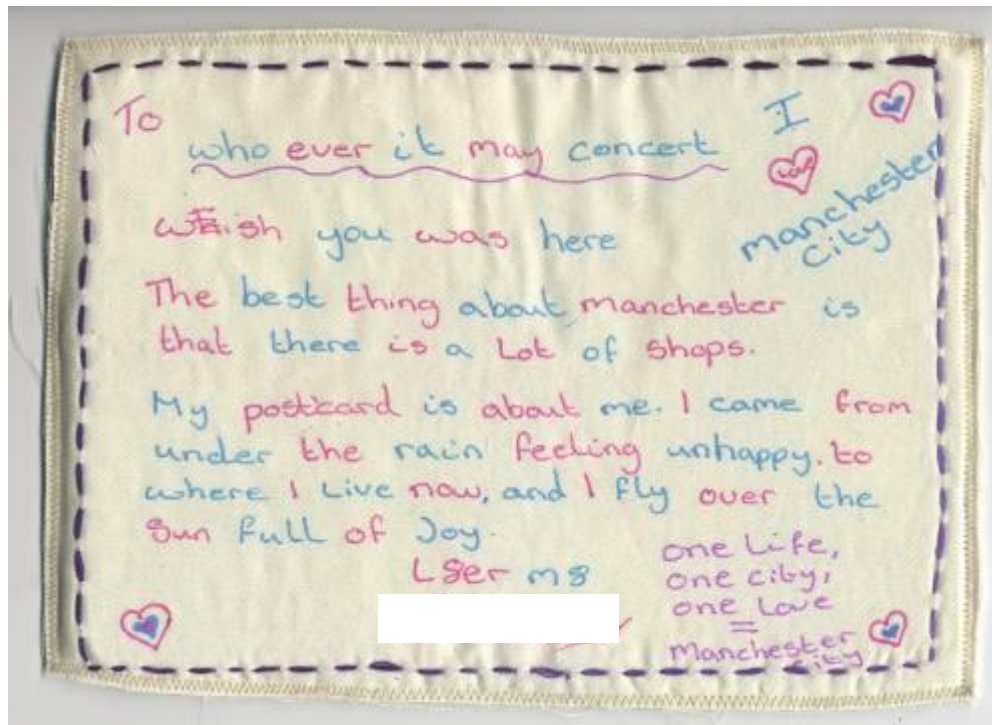 To
who ever it may concert
I
love
manchester
City
wish you was here
The best thing about manchester is
that there is a Lot of shops.
My postcard is about me. I came from
under the rain feeling unhappy. to
where I Live now, and I fly over the
Sun full of Joy.
L8er m8
one Life,
one city,
one Love
=
Manchester
City